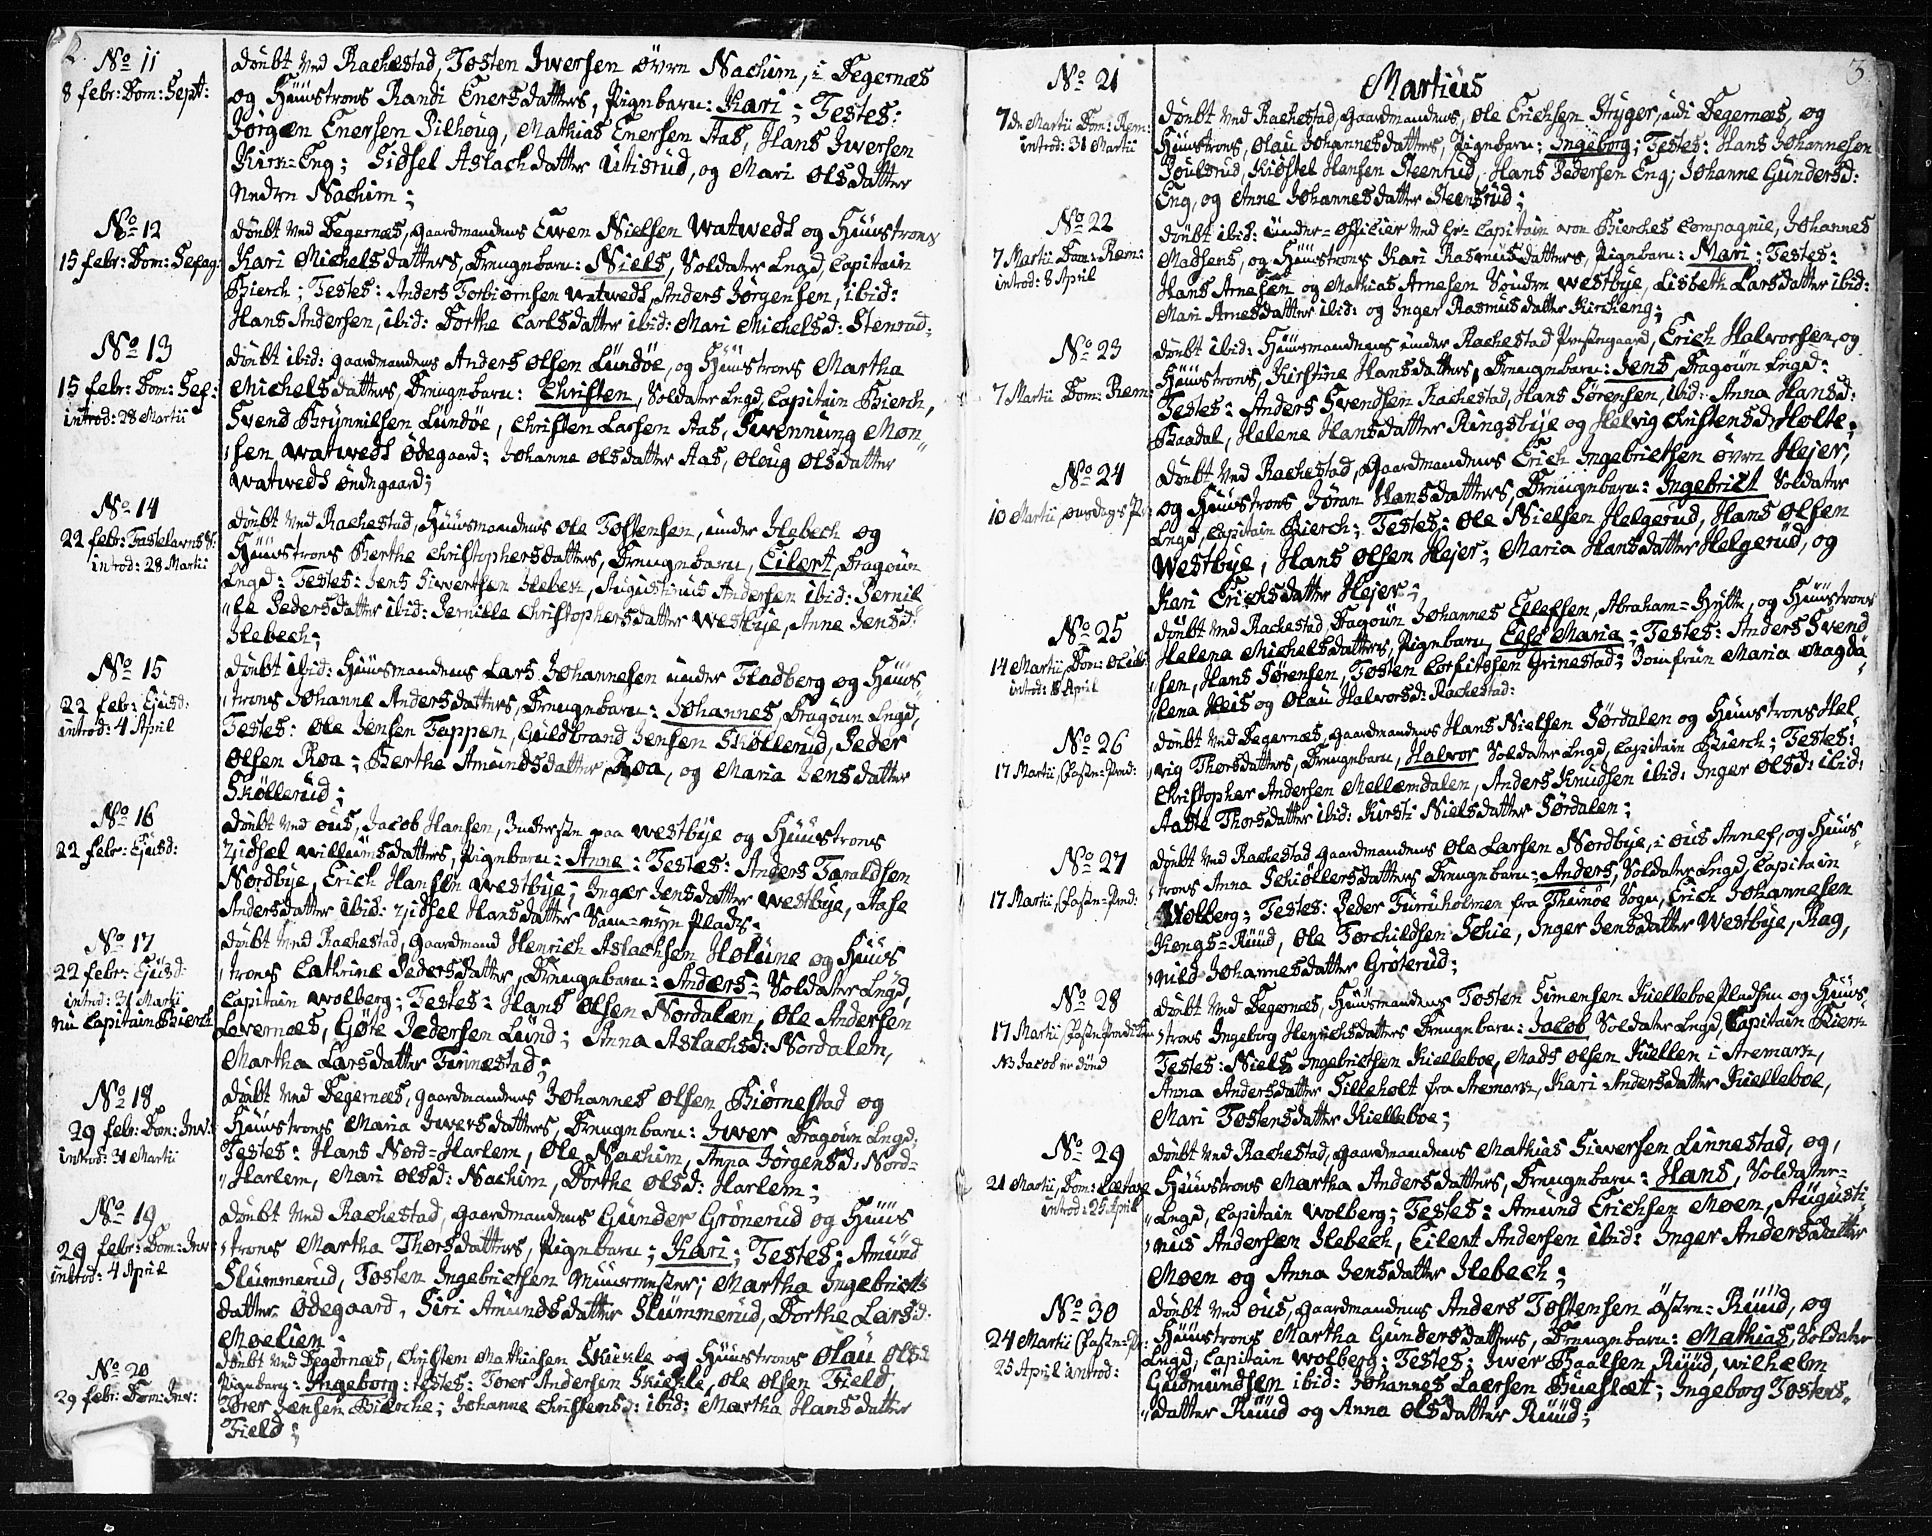 2.
No 11
8 febr: Dom: Sept:
Döubt ved Rachestad, Tosten Iwersen övre Nachim, i Degernæs
og Hüüstrons Randi Enersdatters, Pigebarn: Kari; Testes:
Jörgen Enersen Pilhoug, Mathias Enersen Aas, Hans Iwersen
Kirn-Eng; Sidsel Aslachdatter Utisrud, og Mari Olsdatter
Nedre Nachim;
No 12
15 febr: Dom: Sexag:
Döubt ved Degernæs, gaardmandens Ewen Nielsen Watwedt og Hüüstrons
Kari Michelsdatters, Drengebarn: Niels, Soldater Lægd, Capitain
Bierch; Testes: Anders Torbiörnsen Watwedt, Anders Jörgensen, ibid:
Hans Andersen, ibid: Dorthe Carlsdatter ibid: Mari Michelsd: Stenrud:
No 13
15 febr: Dom: Sex:
introd: 28 Martii
Döubt ibid: gaardmandens Anders Olsen Lündöe, og Hüüstrons Martha
Michelsdatters, Drengebarn: Christen, Soldater Lægd, Capitain Bierch,
Svend Brynnilsen Lündöe, Christen Larsen Aas, Swennung Mon"
"sen Watwedt Ödegaard; Johanne Olsdatter Aas, Oloug Olsdatter
Watwedt öndegaard;
No 14
22 febr: Fastelavns S:
introd: 28 Martii
Döubt ved Rachestad, Hüüsmandens Ole Tostensen, under Ilebech og
Hüüstrons Berthe Christophersdatters, Drengebarn, Eilert, Dragoun
Lægd: Testes: Jens Siwersen Ilebech, Augustinus Andersen ibid: Pernil
"le Pedersdatter ibid: Pernille Christophersdatter Westbye, Anne Jensd:
Ilebech;
No 15
22 febr: Ejusd:
introd: 4 April
Döubt ibid: Hüüsmandens Lars Johannesen under Fladberg og Hüüs-
"trons Johanne Andersdatters, Drengebarn: Johannes, Dragoun Lægd,
Testes: Ole Jensen Tappen, Guldbrand Jensen Sköllerud, Peder
Olsen Roa; Berthe Amundsdatter Roa, og Maria Jensdatter
Sköllerud;
No 16
22 febr: Ejusd:
Döubt ved Öus, Jacob Hansen, Inderste paa Westbye og Hüüstrons
Zidsel Willumsdatters, Pigebarn: Anne: Testes: Anders Taraldsen
Nordbye, Erich Hansen Westbye; Inger Jensdatter Westbye, Aase
Andersdatter ibid: Zidsel Hansdatter Plads:
No 17
22 febr: Ejusd:
introd: 31 Martii
nu Capitain Bierch
Döubt ved Rachestad, Gaardmand Henrich Aslachsen Holüne og Hüüs
"trons Cathrine Pedersdatter, Drengebarn: Anders: Soldater Lægd,
Capitain Wolberg; Testes: Hans Olsen Nordalen, Ole Andersen
Levernæs, Göte Pedersen Lund; Anna Aslachsd: Nordalen,
Martha Larsdatter Finnestad;
No 18
29 febr: Dom: Inv:
introd: 31 Martii
Döubt ved Degernæs, gaardmandens Johannes Olsen Biörnestad og
Hüüstrons Maria Iwersdatters, Drengebarn: Iwer Dragoun Lægd:
Testes: Hans Nord-Harlem, Ole Nachim, Anna Jörgensd: Nord-
"Harlem, Mari Olsd: Nachim, Dorthe Olsd: Harlem;
No 19
29 febr: Dom: Inv:
introd: 4 April
Döubt ved Rachestad, gaardmandens Gunder Grönerud og Hüüs
"trons Martha Thorsdatters, Pigebarn; Kari; Testes: Amund
Slümmerud, Tosten Ingebrietsen Muurmester; Martha Ingebriets
datter Ödegaard, Siri Amundsdatter Slümmerud, Dorthe Larsd:
Moelien:
No 20
29 febr: Dom: Inv:
Döubt ved Degernæs, Christen Mathiasen Skiekle og Hüüstrons Olau Olsd:
Pigebarn: Ingeborg: testes: Torer Andersen Skiekle, Ole Olsen Field
Torer Jensen Bierche; Johanne Christensd: ibid: Martha Hansdatter
Field;
3
Martius
No 21
7de Martii Dom: Rem:
introd: 31 Martii
Döubt ved Rachestad, Gaardmandens, Ole Erichsen Stryger, udi Degernæs, og
Hüüstrons, Olau Johannesdatters, Pigebarn: Ingeborg; Testes: Hans Johannesen
Joulsrud, Kiöstel Hansen Steenrud, Hans Pedersen Eng; Johanne Gundersd:
Eng, og Anne Johannesdatter Steensrud;
No 22
7 Martii Dom: Rem:
introd: 8 April
Döubt ibid: Under-Officier ved Hr: Capitain von Bierches Compagnie, Johannes
Madsens, og Hüüstrons Kari Rasmusdatters, Pigebarn: Mari: Testes:
Hans Arnesen og Mathias Arnesen Söndre Westbye, Lisbeth Larsdatter ibid:
Mari Arnesdatter ibid: og Inger Rasmusdatter Kircheng;
No 23
7 Martii Dom: Rem:
Döubt ibid: Hüüsmandens under Rachestad Præstegaard, Erich Halvorsen, og
Hüüstrons, Kirstine Hansdatters, Drengebarn: Jens, Dragoun Lægd:
Testes: Anders Svendsen Rachestad, Hans Sörensen, ibid: Anna Hansd:
Baadal, Helene Hansdatter Ringsbye og Helvig Christensd, Holte;
No 24
10 Martii, onsdags Pr:
Döubt ved Rachestad, Gaardmandens Erich Ingebrietsen övre Hejer,
og Hüüstrons Jöran Hansdatters, Drengebarn: Ingebriet Soldater
Lægd, Capitain Bierch; Testes: Ole Nielsen Helgerud, Hans Olsen
Westbye, Hans Olsen Hejer; Maria Hansdatter Helgerud, og
Kari Erichsdatter Hejer;
No 25
14 Martii Dom: Oculi:
introd: 8 April
Döubt ved Rachestad Dragoun Johannes Ellefsen, Abraham-Hytte, og Hüüstrons
Helena Michelsdatters, Pigebarn, Else Maria; Testes: Anders Svend
"sen, Hans Sörensen, Tosten Corfitssen Grinestad; Jomfrue Maria Magda
"lena Heis og Olau Halvorsd: Rachestad:
No 26
17 Martii, Faste-Præd:
Döubt ved Degernæs, gaardmandens Hans Nielsen Sördalen og Hüüstrons Hel
"vig Thorsdatters, Drengebarn, Halvor Soldater Lægd, Capitain Bierch; Testes:
Christopher Andersen Mellemdalen, Anders Knudsen ibid: Inger Olsd: ibid:
Aatte Thorsdatter ibid: Kirsti Nielsdatter Sördalen;
No 27
17 Martii, Faste-Præd:
Döubt ved Rachestad Gaardmandens Ole Larsen Nordbye, i Öus Annex, og Hüüs
"trons Anna Schiöllersdatters Drengebarn: Anders, Soldater Lægd, Capitain
Wolberg; Testes: Peder Furruholmen fra Thunöe Sogn, Erich Johannesen
Kongs-Rüüd, Ole Torchildsen Schie, Inger Jensdatter Westbye, Rag,
"nild Johannesdatter Gröterud;
No 28
17 Martii, Faste-Prædiken
NB Jacob er död
Döubt ved Degernæs, Hüüsmandens Tosten Simensen Kielleboe Pladsen og Hüüs-
"trons Ingeborg Henrichsdatters Drengebarn: Jacob Soldater Lægd, Capitain Bierch
Testes: Niels Ingebrietsen Kielleboe, Mads Olsen Kiellen i Aremarch,
Anna Andersdatter Silleholt fra Aremarch, Kari Andersdatter Kielleboe,
Mari Tostensdatter Kielleboe;
No 29
21 Martii, Dom: Lætare
introd: 25 April
Döubt ved Rachestad, Gaardmandens Mathias Siwersen Linnestad, og,
Hüüstrons Martha Andersdatters, Drengebarn: Hans, Soldater-
"Lægd, Capitain Wolberg; Testes: Amund Erichsen Moen, Augusti,
"nus Andersen Ilebech, Eilert Andersen ibid: Inger Andersdatter
Moen og Anna Jensdatter Ilebech;
No 30
24 Martii Faste-Pr:
25 April introd:
Döubt ved Öus, Gaardmandens Anders Tostensen östre-Rüüd, og
Hüüstrons Martha Gundersdatters, Drengebarn: Mathias, Soldater
Lægd, Capitain Wolberg: Testes: Iwer Paalsen Rüüd, Wilhelm
Gudmundsen ibid: Johannes Laersen Bueslæt; Ingeborg Tostens-
"datter Rüüd og Anna Olsdatter Rüüd;